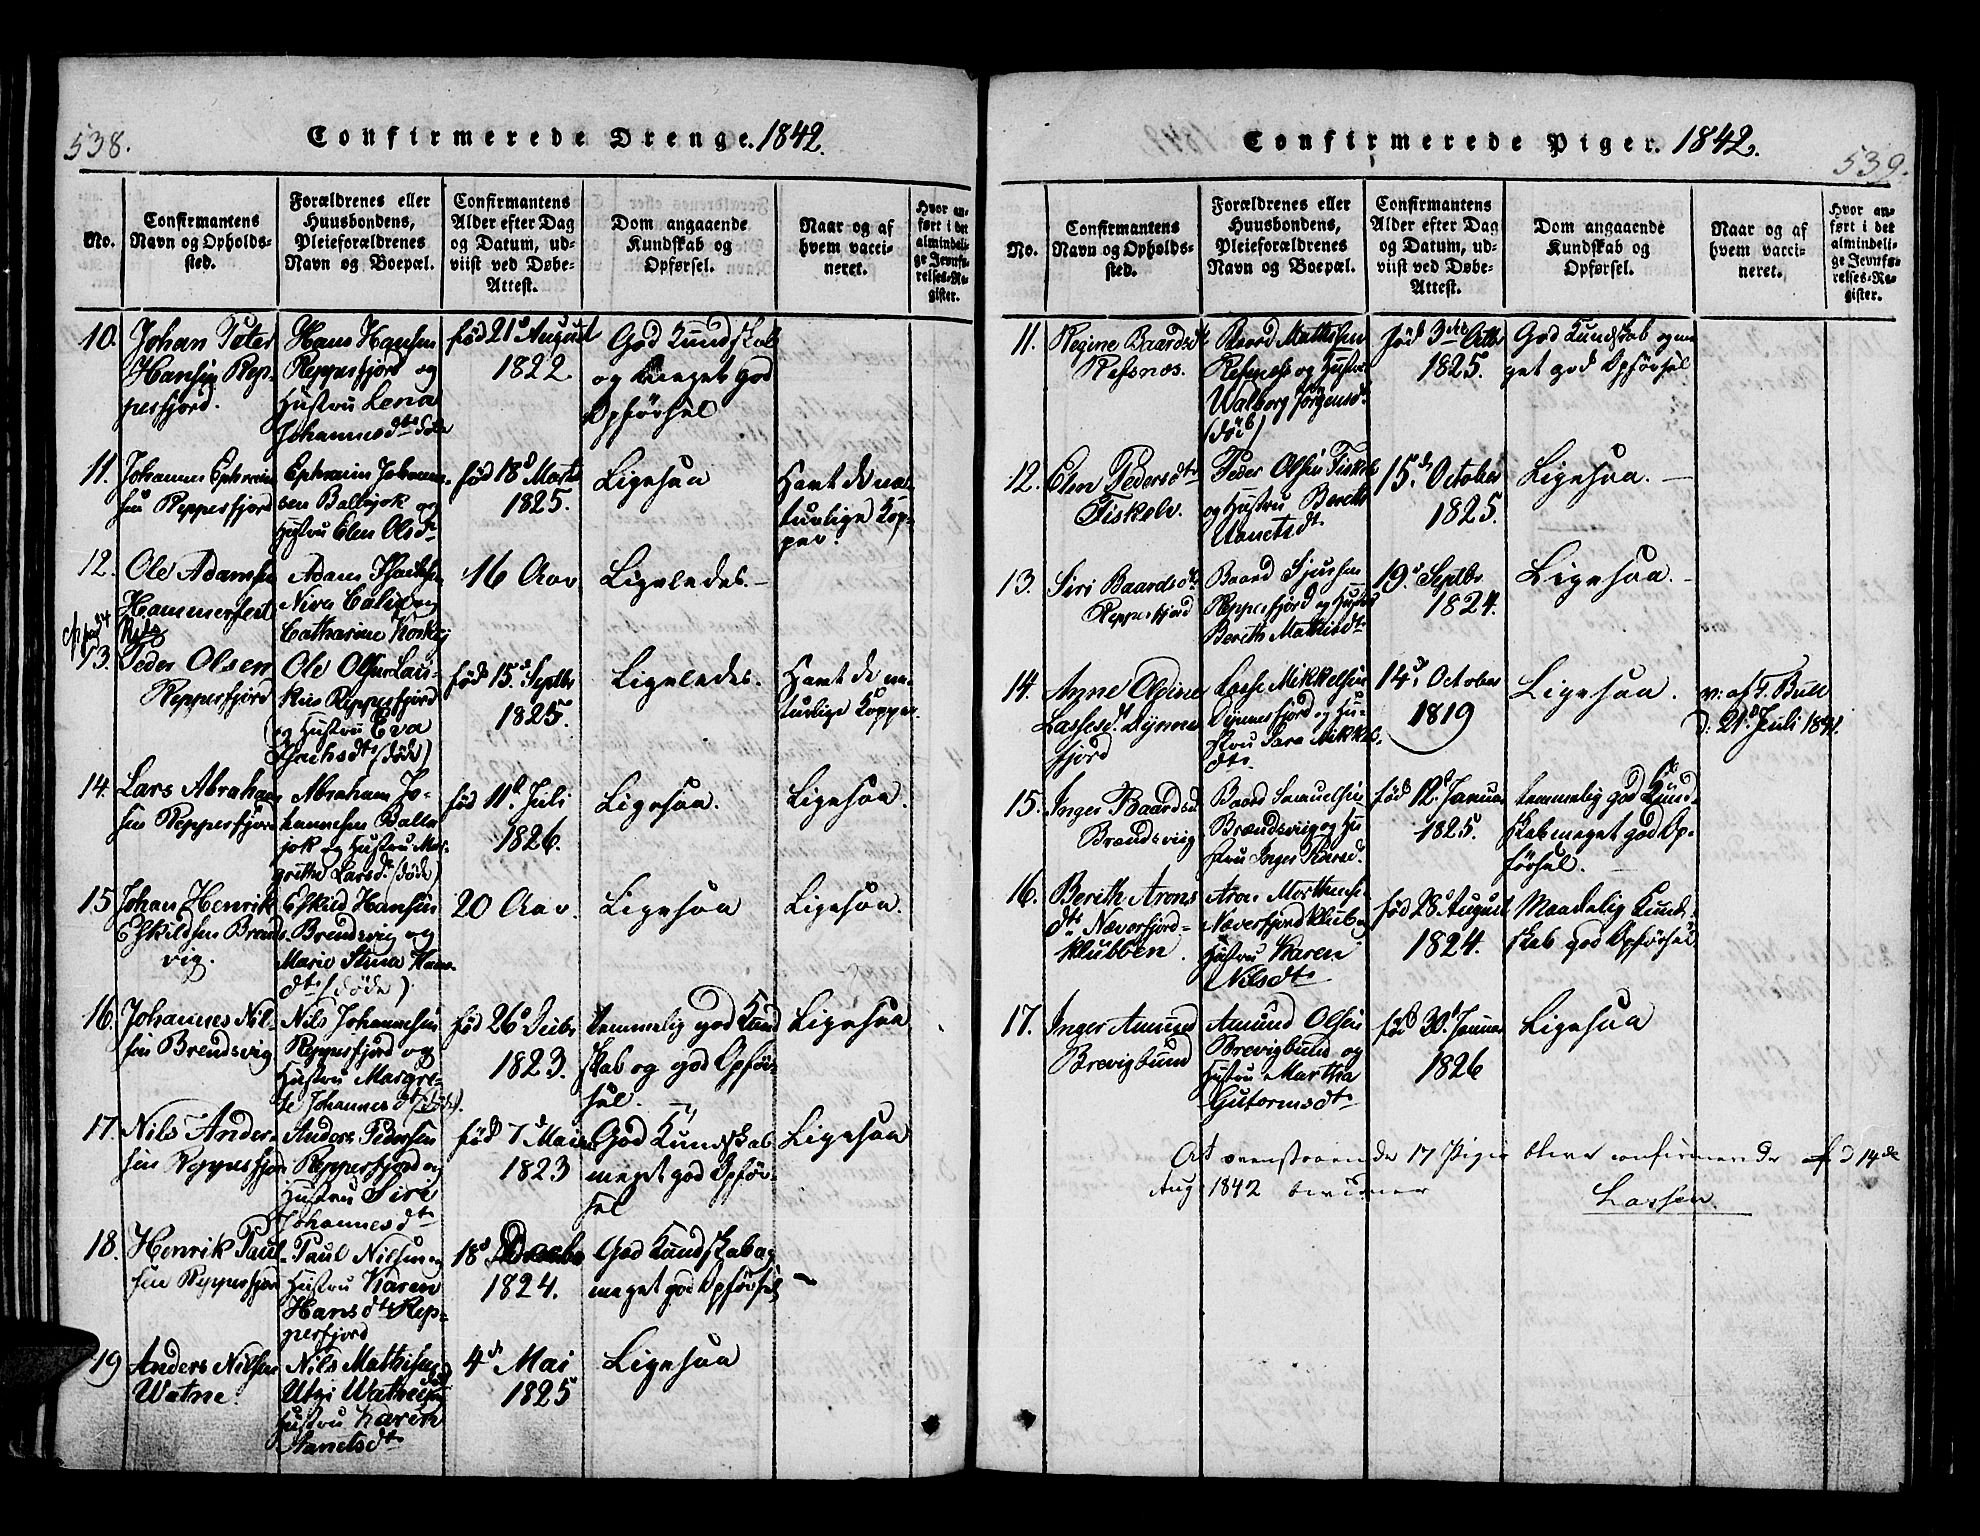 538.
Confirmerede Drenge. 1842.
No.
Confirmantens
Navn og Opholds-
sted.
Forældrenes eller
Huusbondens,
Pleieforældrenes
Navn og Boepæl.
Confirmantens
Alder efter Dag
og Datum, ud-
viist ved Døbe-
Attest.
Dom angaaende
Kundskab og
Opførsel.
Naar og af
hvem vacci-
neret.
Hvor an-
ført i det
almindeli-
ge Jevnfø-
relses-Re-
gister.
10.
Johan Peter
Hansen Rep-
perfjord.
Hans Hansen
Repperfjord og
Hustru Lena
Johannesdtr døde
fød 21d August
1822.
God Kundskab
og meget god
Opførsel
11.
Johannes Ephraim-
sen Repperfjord
Ephraim Johanne-
sen Ballojok og
Hustru Elen Olsdtr
fød 18d Marts
1825.
Ligesaa
Havt de na-
turlige Kop-
per.
12.
Ole Adamsen
Hammerfest
Adam Isachsen
Niva og
Catharine
16 Aar
Ligeledes.
13.
Peder Olsen
Repperfjord
Ole Olsen
Repperfjord
og Hustru Eva
Isachsdtr (døde)
fød 15d Septbr
1825.
Ligeledes.
Havt de na-
turlige Kopper.
14.
Lars Abraham-
sen Repperfjord
Abraham Jo-
hannesen Ballo-
jok og Hustru Mar-
grethe Larsd. (døde)
fød 11d Juli
1826.
Ligesaa.
Ligesaa.
15
Johan Henrik
Eskildsen Brends-
vig.
Eskild Hansen
Brendsvig og
Marie Stina Hans-
dtr (døde)
20 Aar.
Ligesaa
Ligesaa.
16.
Johannes Nil-
sen Brendsvig
Nils Johannesen
Repperfjord og
Hustru Margre-
te Johannesd (døde).
fød 26d Decbr
1823.
temmelig god Kund
skab og god Opfør-
sel.
Ligesaa
17.
Nils Ander-
sen Repperfjord
Anders Pedersen
Repperfjord og
Hustru Siri
Johannesdtr
fød 7d Mai
1823
God Kundskab
meget god Opfør-
sel
Ligesaa
18.
Henrik Paul-
sen Repperfjord
Paul Nilsen og
Hustru Karen
Hansdtr Rep-
perfjord
18d
1824.
God Kundskab og
meget god Opførsel
19
Anders Nilsen
Watne.
Nils Mathisen
Utzi Watne og
Hustru Karen
4d Mai
1825
Ligesaa
Confirmerede Piger. 1842.
539.
No.
Confirmantens
Navn og Opholds-
sted.
Forældrenes eller
Huusbondens,
Pleieforældrenes
Navn og Boepæl.
Confirmantens
Alder efter Dag
og Datum, ud-
viist ved Døbe-
Attest.
Dom angaaende
Kundskab og
Opførsel.
Naar og af
hvem vacci-
neret.
Hvor an-
ført i det
almindeli-
ge Jevnfø-
relses-Re-
gister.
11.
Regine Baardsdtr
Refsnæs.
Baard Mathisen
Refsnæs og Hustru
Walborg Jørgensd.
(død)
fød 3die Octbr
1825.
God Kundskab og me-
get god Opførsel
12.
Elen Pedersdtr
Fiskelv.
Peder Olsen Fiskelv
og Hustru Bereth
15d October
1825.
Ligesaa.
13.
Siri Baardsdtr
Repperfjord
Baard Sjursen
Repperfjord og Hustru
Bereth Mathisdtr
19d Septbr
1824.
Ligesaa.
14.
Anne Olpine
Lassesd. Dynne
fjord
Lasse Mikkelsen
Dynnesfjord og Hu-
stru Sara Mikkels-
dtr
14d October
1819
Ligesaa.
v. af F. Bull
d. 21d Juli 1841.
15.
Inger Baardsd
Brendsviig
Baard Samuelsen
Brendsviig og Hu
stru Inger
fød 12d Januar
1825.
temmelig god Kund-
skab meget god Op-
førsel.
16.
Berith Arons
dtr Næverfjord-
klubben.
Aron Mortensen
Næverfjordklub og
Hustru Karen
Nilsdtr
fød 28d August
1824.
Maadelig Kund-
skab god Opførsel
17.
Inger Amund
Brevigbund
Amund Olsen
Brevigbund og
Hustru Martha
Gutormsdtr
fød 30d Januar
1826
Ligesaa
At ovenstaaende 17 Piger bleve confirmerede d 14de
Aug 1842 bevidner
Lassen.